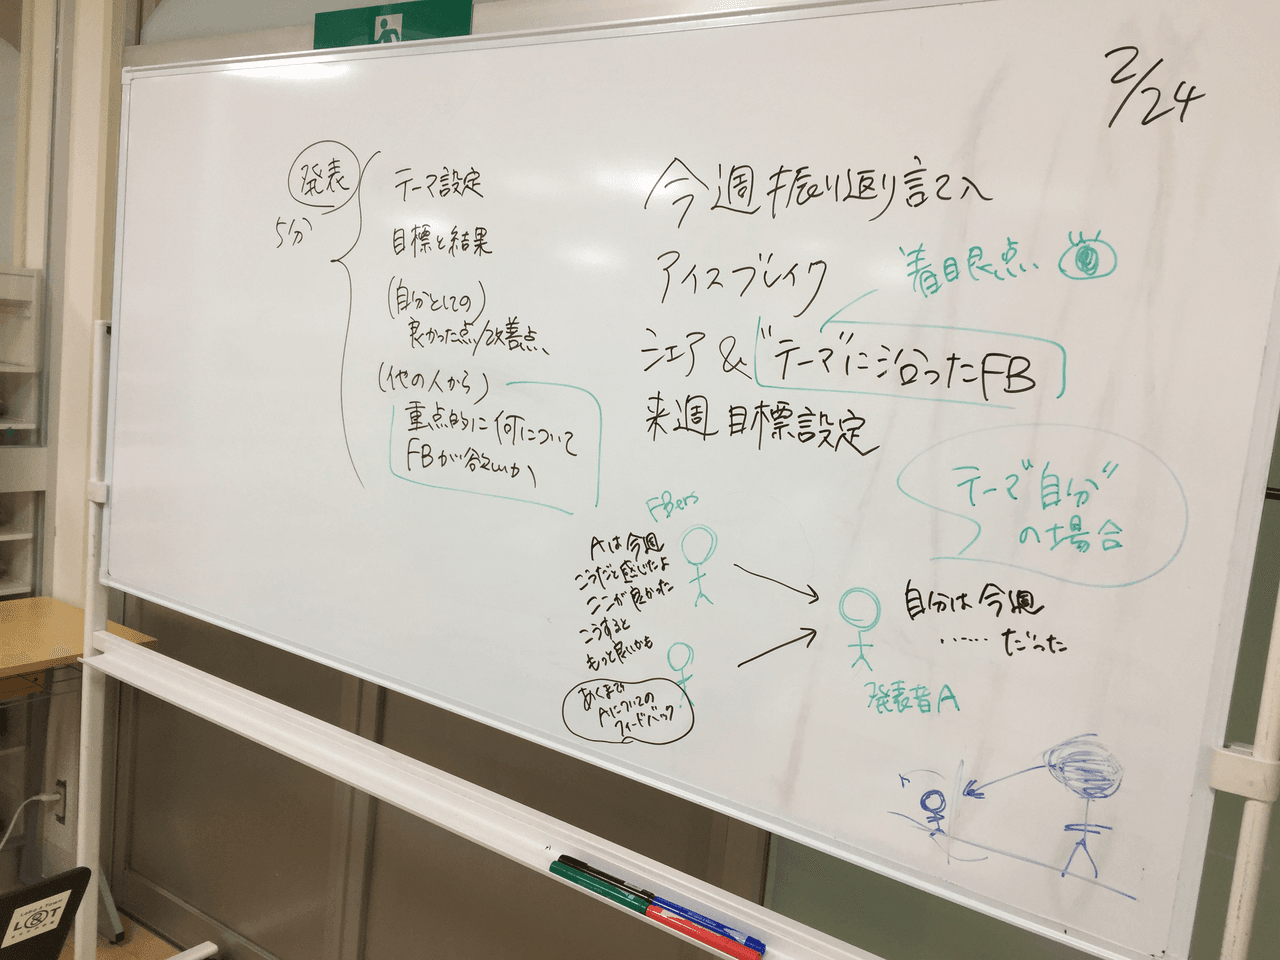 2/24
発表
5分
テーマ設定
目標と結果
(自分としての)
良かった点/改善点、
(他の人から)
重点的に何について
FBが欲しいか
今週振り返り記入
アイスブレイク
シェア&"テーマ"に沿ったFB
来週目標設定
着眼点
テーマ"自分"
の場合
FBers
Aは今週
こうだと感じたよ
ここが良かった
こうすると
もっと良いかも
あくまで
Aについての
フィードバック
自分は今週
……だった
発表者A
L&T